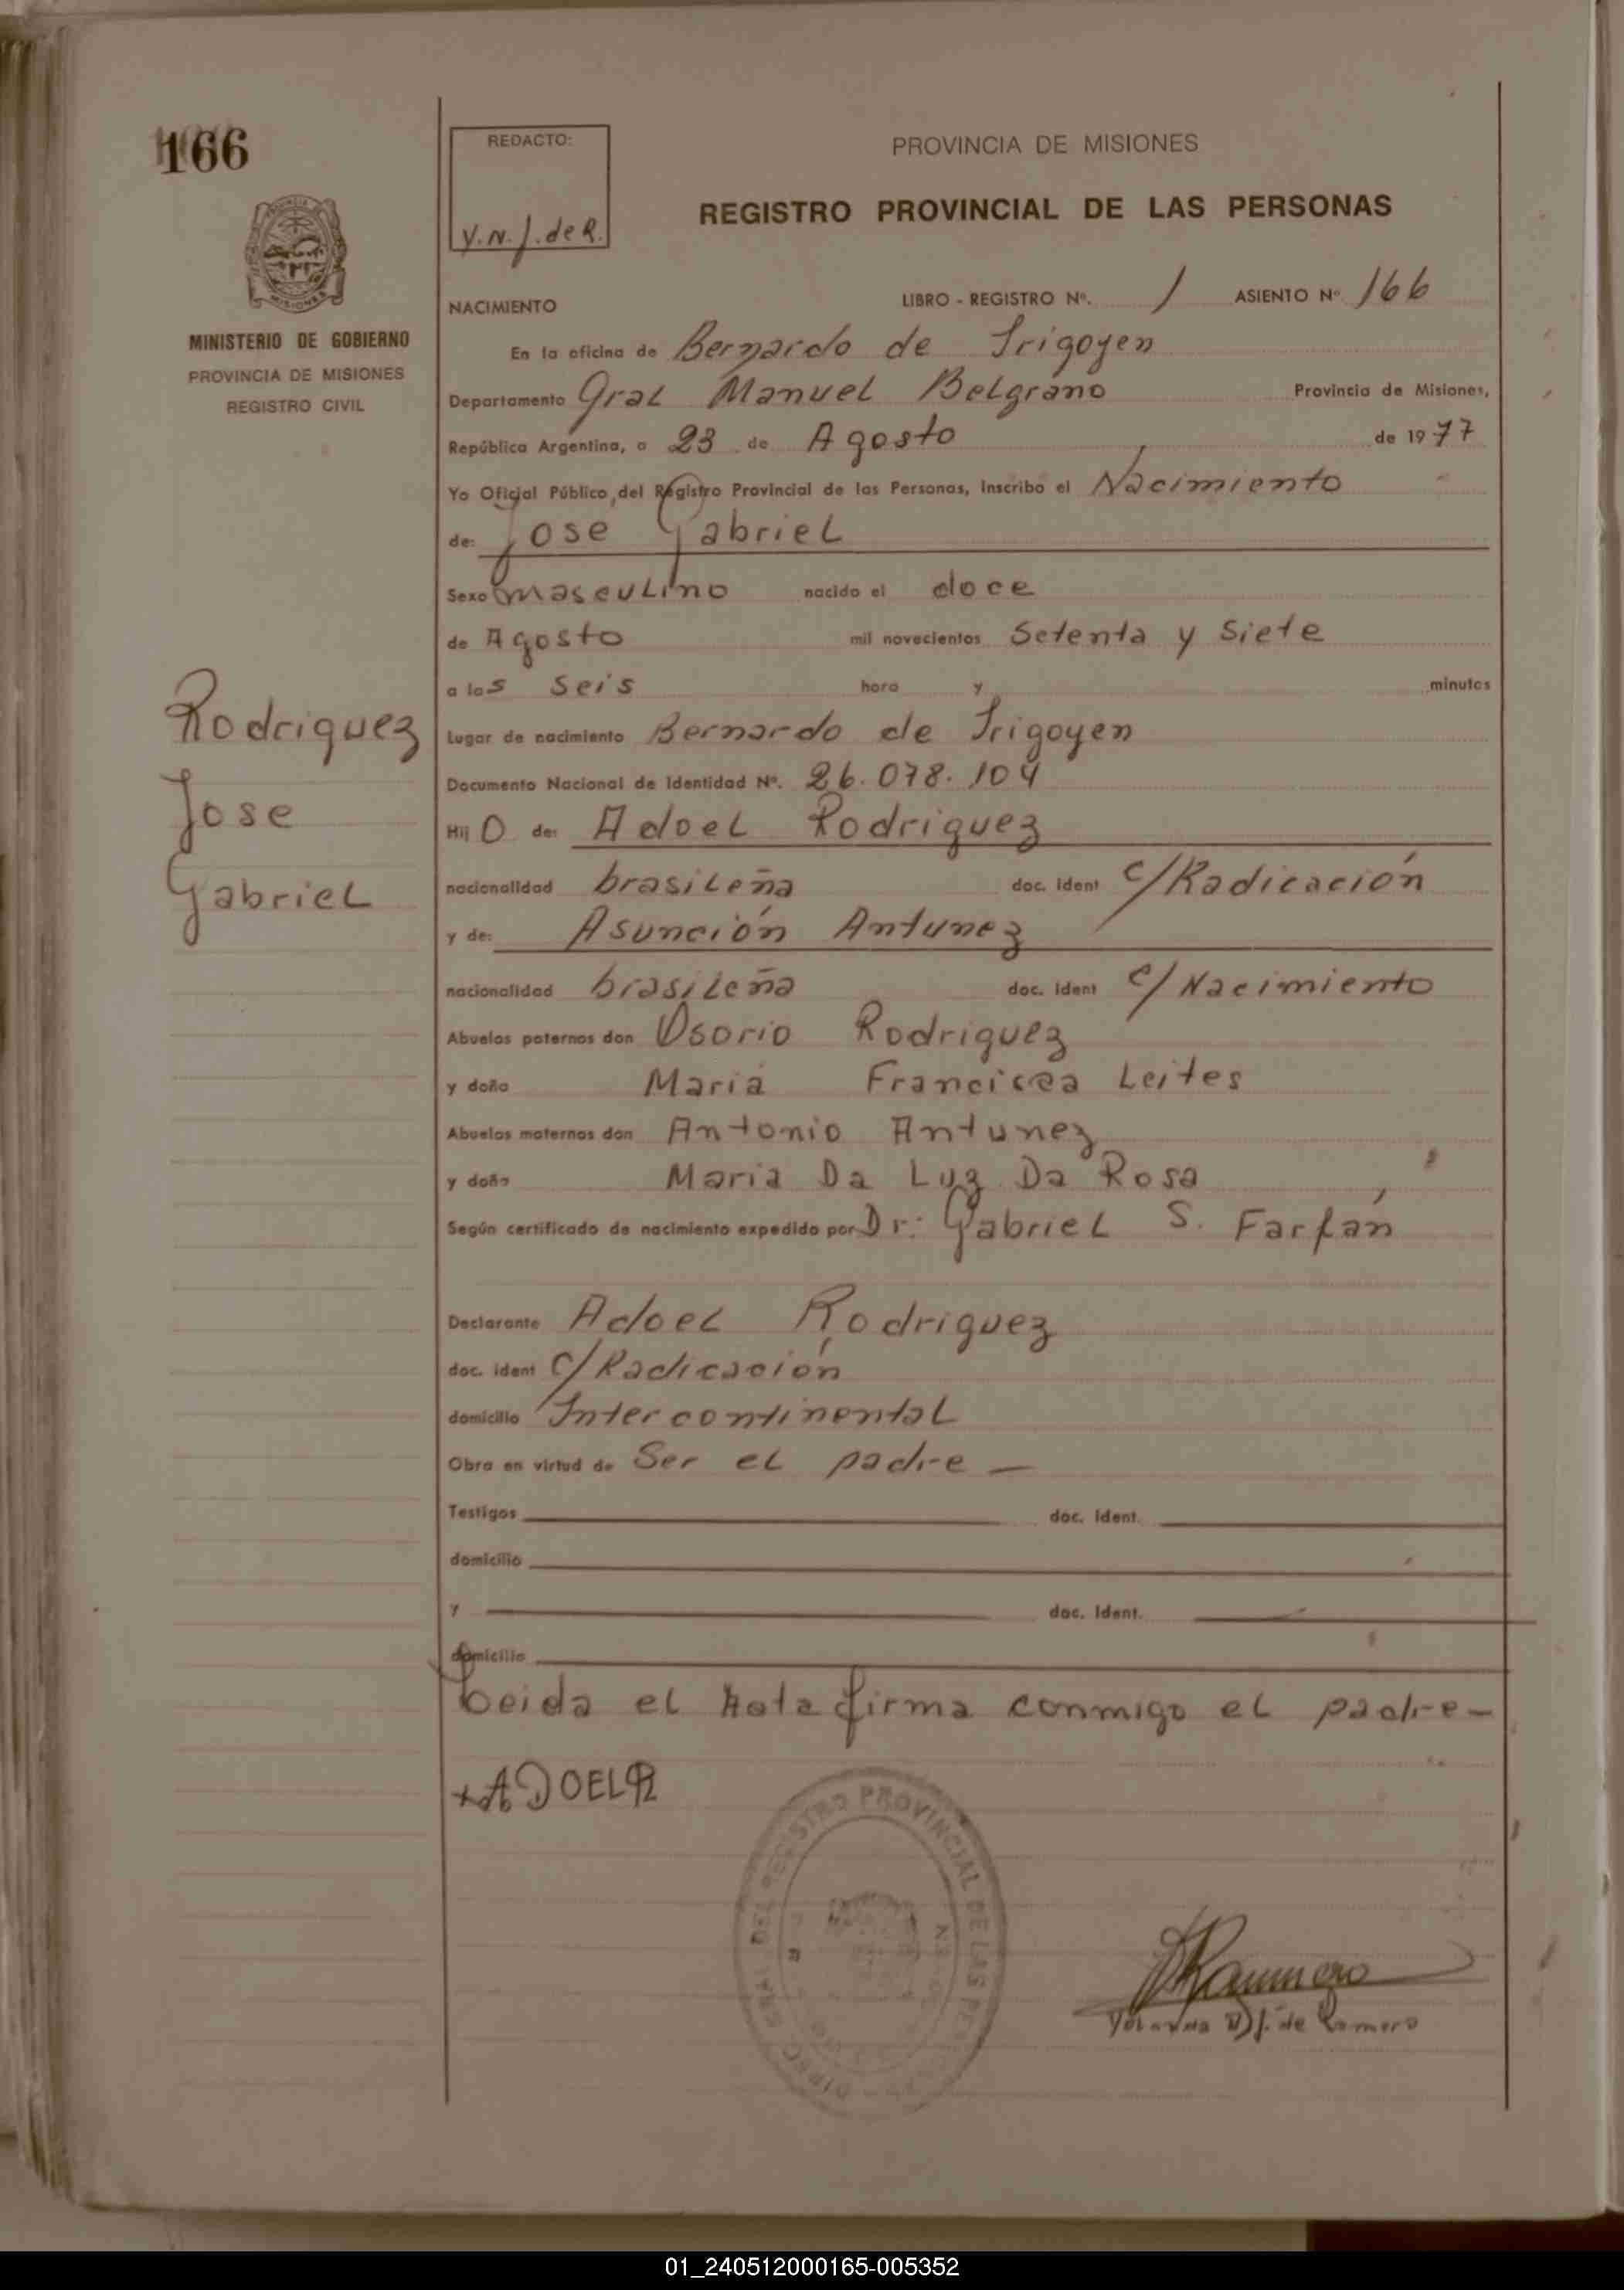 166
REDACTO:
Y.N.J. de R.
PROVINCIA DE MISIONES
REGISTRO PROVINCIAL DE LAS PERSONAS
MINISTERIO DE GOBIERNO
PROVINCIA DE MISIONES
REGISTRO CIVIL
NACIMIENTO LIBRO - REGISTRO Nº. 1 ASIENTO Nº 166
En la oficina de Bernardo de Irigoyen
Departamento Gral Manuel Belgrano Provincia de Misiones,
República Argentina, a 23 de Agosto de 1977
Yo Oficial Público del Registro Provincial de las Personas, Inscribo el Nacimiento
de: Jose Gabriel
Sexo masculino nacido el doce
de Agosto mil novecientos Setenta y Siete
a las seis hora y minutos
Rodriguez
Jose
Gabriel
Lugar de nacimiento Bernardo de Irigoyen
Documento Nacional de Identidad Nº. 26.078.104
Hij O de: Adoel Rodriguez
nacionalidad brasileña doc. ident c/Radicación
y de: Asunción Antunez
nacionalidad brasileña doc. ident c/Nacimiento
Abuelos paternos don Osorio Rodriguez
y doña Maria Francisca Leites
Abuelos maternos don Antonio Antunez
y doña Maria Da Luz Da Rosa
Según certificado de nacimiento expedido por Dr: Gabriel S. Farfán
Declarante Adoel Rodriguez
doc. ident c/Radicación
domicilio Intercontinental
Obra en virtud de Ser el padre —
Testigos doc. Ident.
domicilio
y doc. Ident.
domicilio
Leida el Acta firma conmigo el padre —
+ADOEL R
DEL REGISTRO PROVINCIAL DE LAS
Yolanda N J. de Romero
01_240512000165-005352